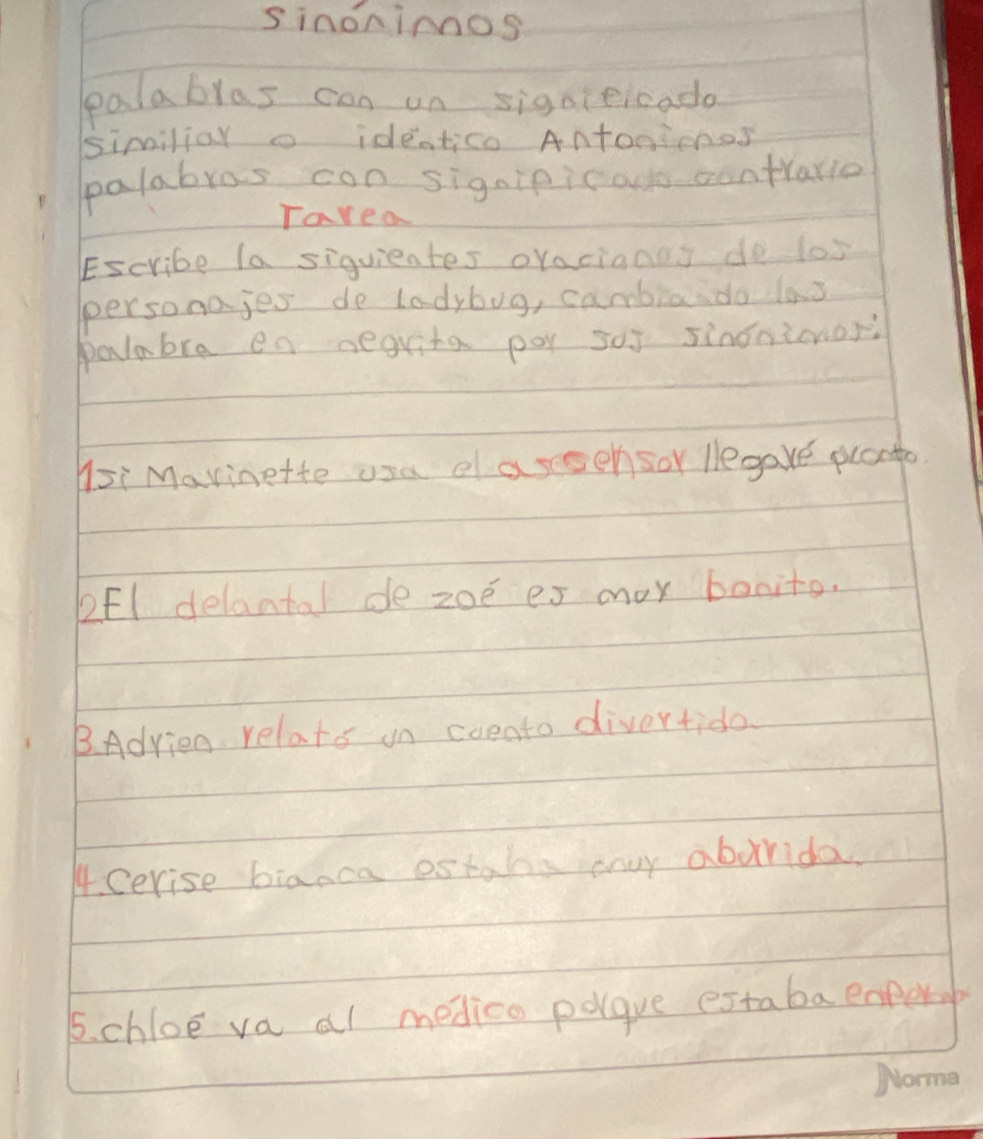 sinónimos
palabras con un significado
similiar o idéntico Antonimos
palabras con significado contrario
Tarea
Escribe la siguientes oraciones de los
personajes de ladybug, cambiando las
palabra en negrita por sus sinónimos:
1si Marinette usa el ascensor llegaré pronto.
2El delantal de zoé es muy bonito.
3.Adrien relató un cuento divertido
4.Cerise bianca estaba muy aburrida.
5.chloé va al médico porque estaba
Norma